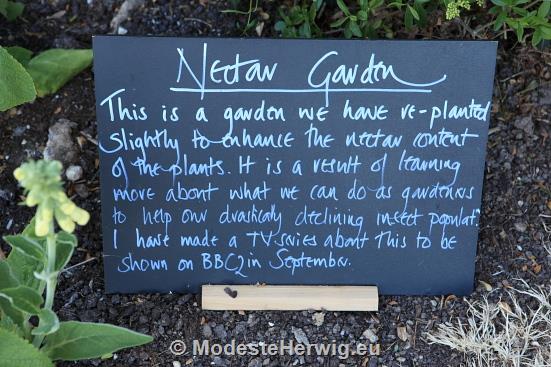 Nectar Garden
This is a garden we have re-planted
slightly to enhance the nectar content
of the plants. It is a result of learning
more about what we can do as gardeners
to help our drastically declining insect populat.
I have made a TV series about this to be
shown on BBC2 in September.
© ModesteHerwig.eu